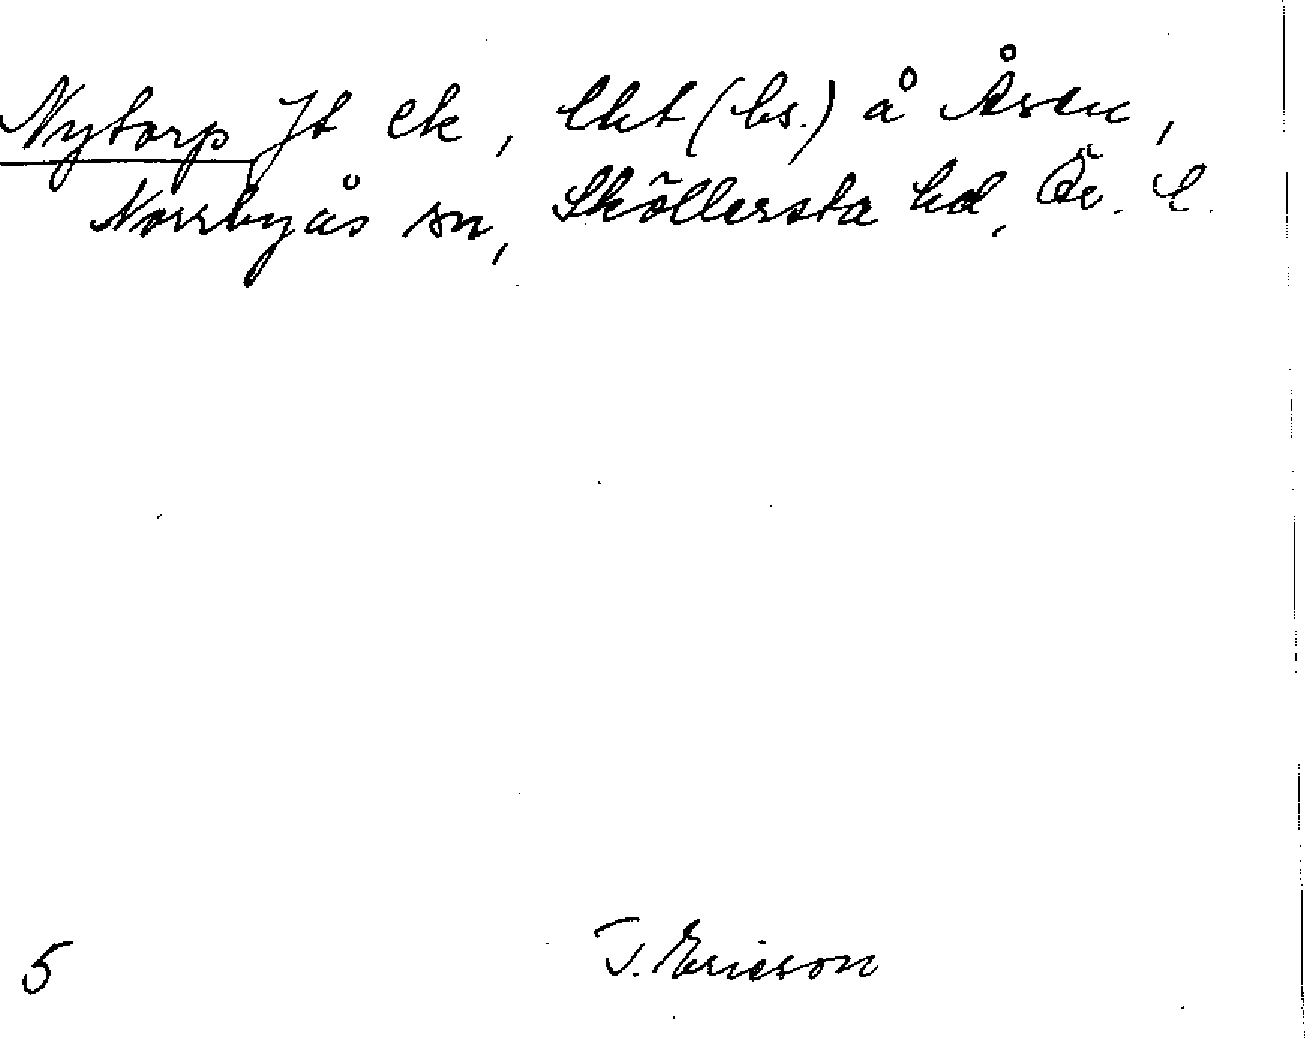 Nytorp Jt ek, lht (bs.) å Åsen,
Norrbyås sn, Sköllersta hd, Ör. l.
5
J. Ericson